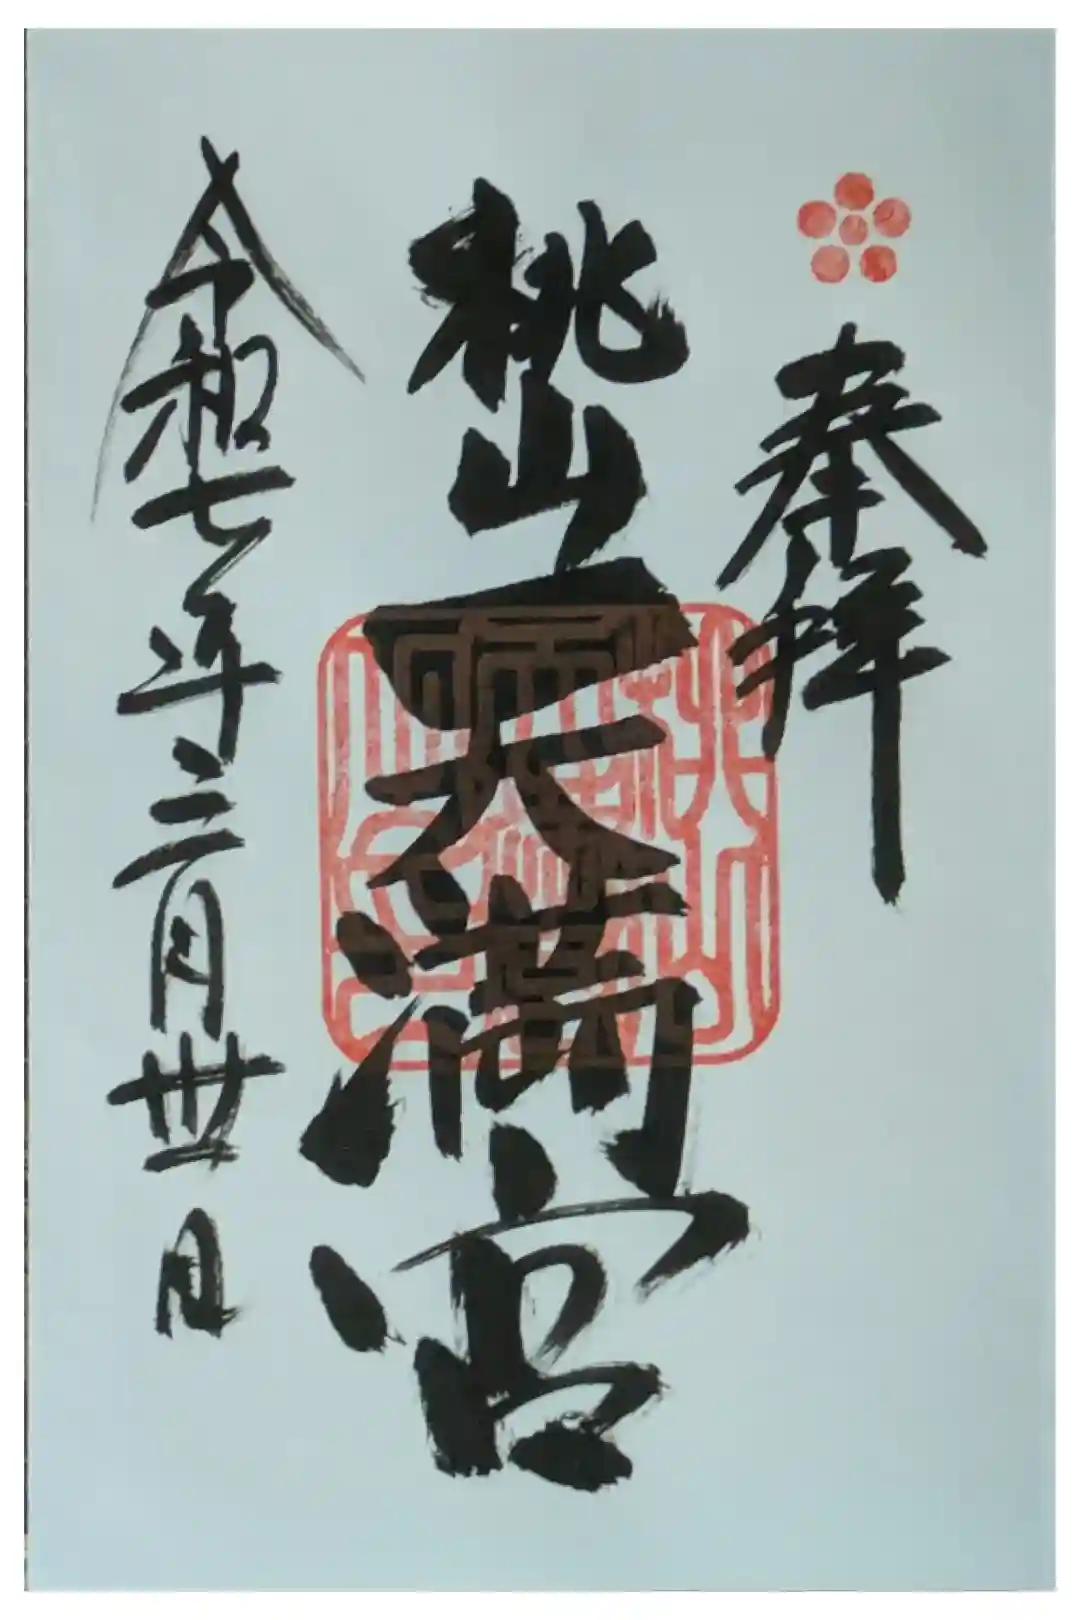 奉拝
桃山天満宮
令和七年三月丗一日